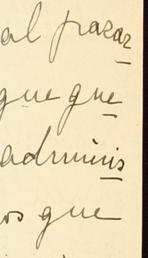 al pazar
que que
adminis
os que